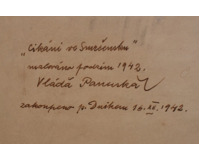 „Cikáni ve Smržensku"
malováno podzim 1942.
Vláďa Panuška
zakoupeno p. Duškem 16. XII. 1942.